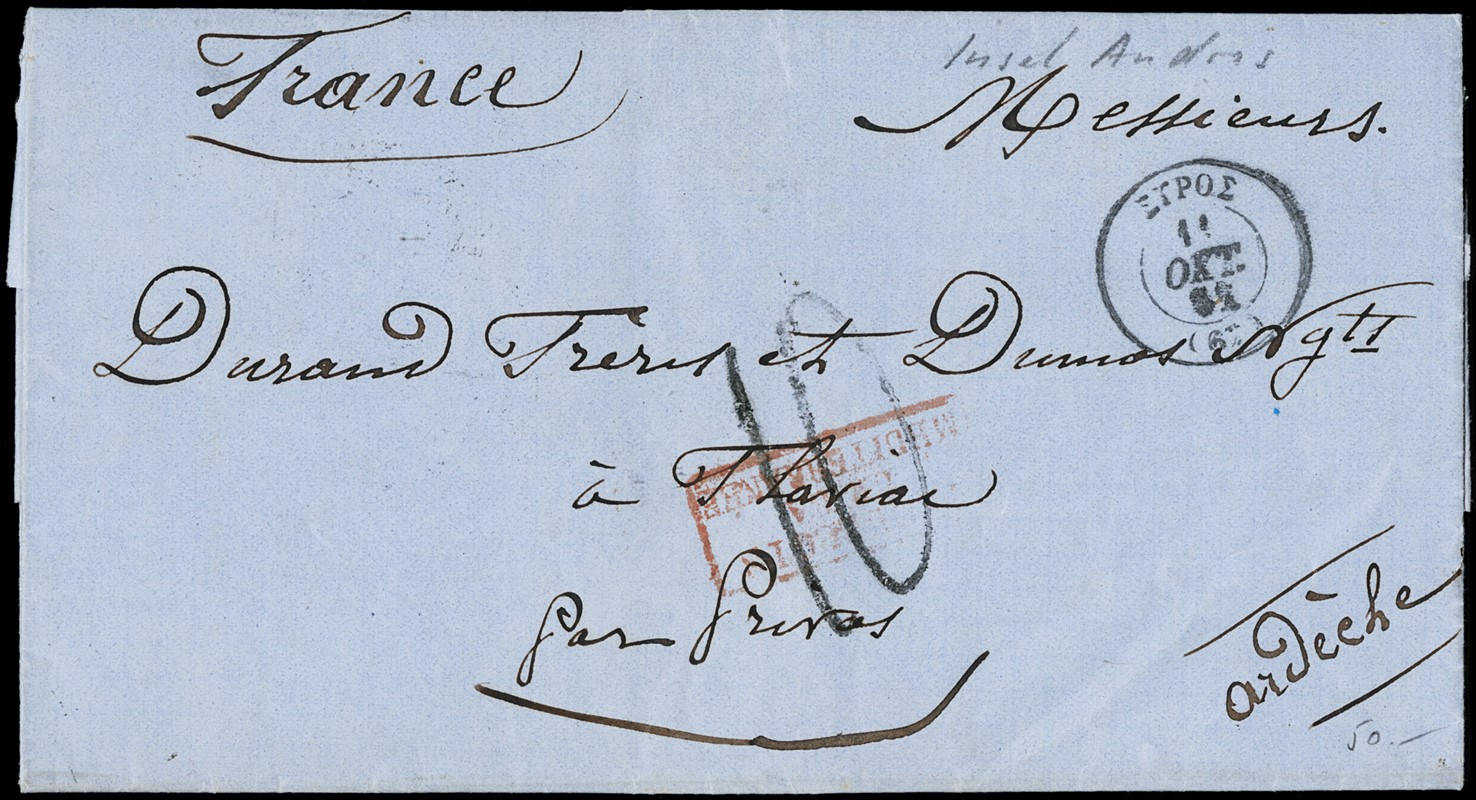 France
Insel Andros
Messieurs.
ΣΥΡΟΣ
11
ΟΚΤ.
(67)
Durand Frères et Dumas Ngts
10
MEDITERRANEE
à Flaviac
par Privas
ardèche
50.—